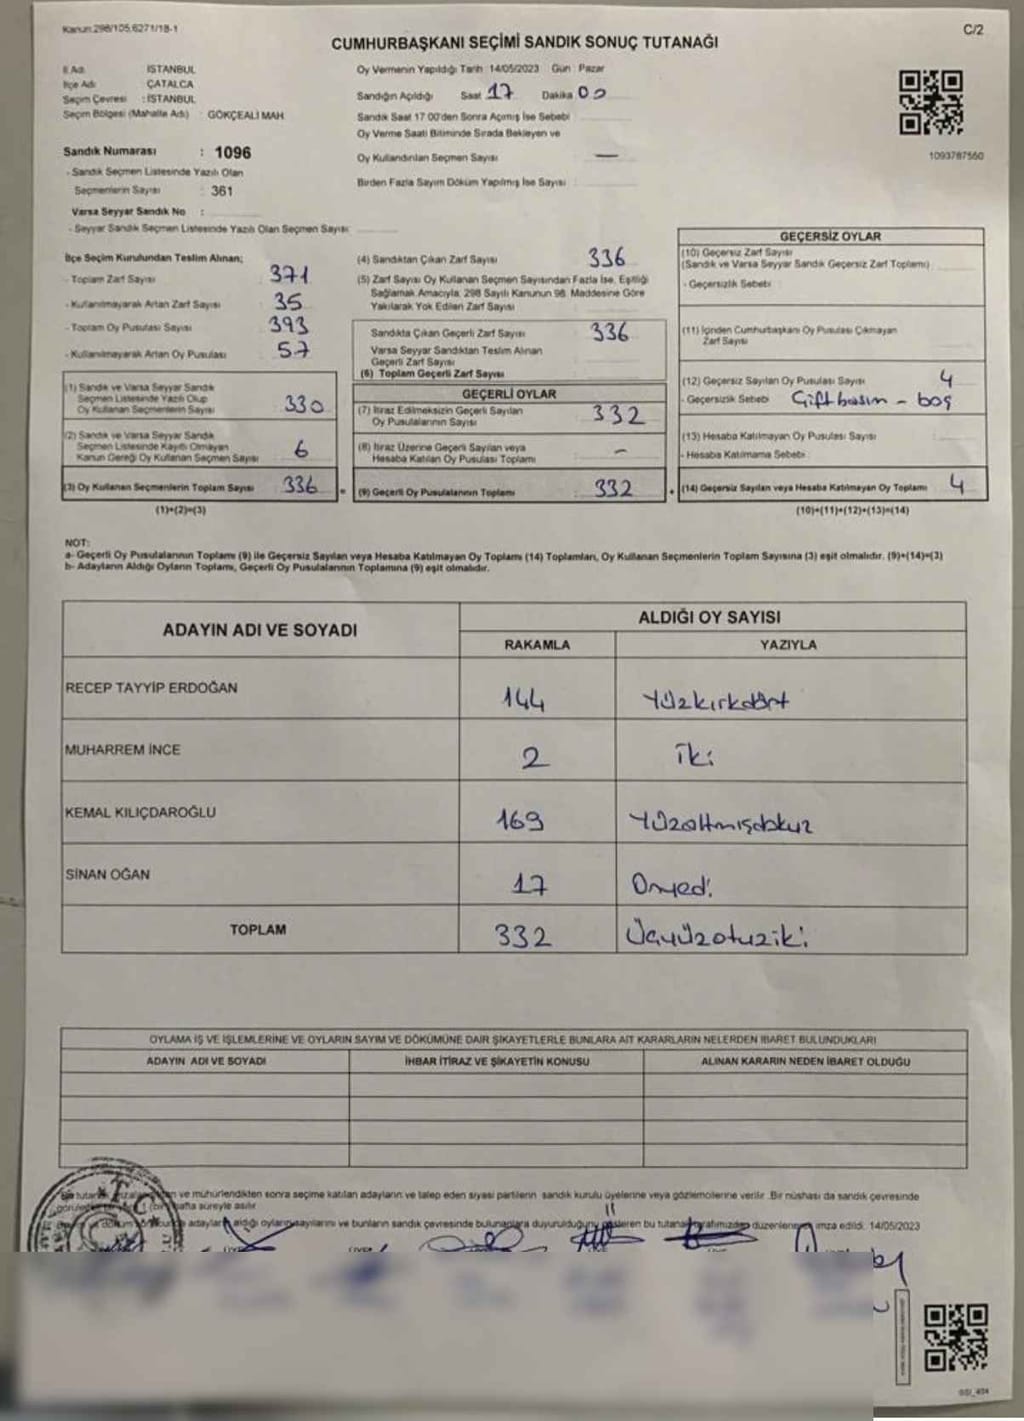 Kanun:298/105,6271/18-1
C/2
CUMHURBAŞKANI SEÇİMİ SANDIK SONUÇ TUTANAĞI
İl Adı : İSTANBUL
İlçe Adı : ÇATALCA
Seçim Çevresi : İSTANBUL
Seçim Bölgesi (Mahalle Adı) : GÖKÇEALİ MAH.
Sandık Numarası : 1096
- Sandık Seçmen Listesinde Yazılı Olan
Seçmenlerin Sayısı : 361
Varsa Seyyar Sandık No :
- Seyyar Sandık Seçmen Listesinde Yazılı Olan Seçmen Sayısı:
Oy Vermenin Yapıldığı Tarih :14/05/2023 Gün : Pazar
Sandığın Açıldığı Saat 17 Dakika 00
Sandık Saat 17:00'den Sonra Açılmış İse Sebebi :
Oy Verme Saati Bitiminde Sırada Bekleyen ve
Oy Kullandırılan Seçmen Sayısı : —
Birden Fazla Sayım Döküm Yapılmış İse Sayısı :
1093787560
İlçe Seçim Kurulundan Teslim Alınan;
- Toplam Zarf Sayısı : 371
- Kullanılmayarak Artan Zarf Sayısı : 35
- Toplam Oy Pusulası Sayısı : 393
- Kullanılmayarak Artan Oy Pusulası : 57
(1) Sandık ve Varsa Seyyar Sandık
Seçmen Listesinde Yazılı Olup
Oy Kullanan Seçmenlerin Sayısı : 330
(2) Sandık ve Varsa Seyyar Sandık
Seçmen Listesinde Kayıtlı Olmayan
Kanun Gereği Oy Kullanan Seçmen Sayısı : 6
(3) Oy Kullanan Seçmenlerin Toplam Sayısı : 336
(1)+(2)=(3)
(4) Sandıktan Çıkan Zarf Sayısı : 336
(5) Zarf Sayısı Oy Kullanan Seçmen Sayısından Fazla İse, Eşitliği
Sağlamak Amacıyla; 298 Sayılı Kanunun 98. Maddesine Göre
Yakılarak Yok Edilen Zarf Sayısı :
Sandıkta Çıkan Geçerli Zarf Sayısı : 336
Varsa Seyyar Sandıktan Teslim Alınan
Geçerli Zarf Sayısı :
(6) Toplam Geçerli Zarf Sayısı :
GEÇERLİ OYLAR
(7) İtiraz Edilmeksizin Geçerli Sayılan
Oy Pusulalarının Sayısı : 332
(8) İtiraz Üzerine Geçerli Sayılan veya
Hesaba Katılan Oy Pusulası Toplamı : -
(9) Geçerli Oy Pusulalarının Toplamı : 332
GEÇERSİZ OYLAR
(10) Geçersiz Zarf Sayısı
(Sandık ve Varsa Seyyar Sandık Geçersiz Zarf Toplamı) :
- Geçersizlik Sebebi :
(11) İçinden Cumhurbaşkanı Oy Pusulası Çıkmayan
Zarf Sayısı :
(12) Geçersiz Sayılan Oy Pusulası Sayısı : 4
- Geçersizlik Sebebi : Çift basım - boş
(13) Hesaba Katılmayan Oy Pusulası Sayısı :
- Hesaba Katılmama Sebebi :
(14) Geçersiz Sayılan veya Hesaba Katılmayan Oy Toplamı : 4
(10)+(11)+(12)+(13)=(14)
NOT:
a- Geçerli Oy Pusulalarının Toplamı (9) ile Geçersiz Sayılan veya Hesaba Katılmayan Oy Toplamı (14) Toplamları, Oy Kullanan Seçmenlerin Toplam Sayısına (3) eşit olmalıdır. (9)+(14)=(3)
b- Adayların Aldığı Oyların Toplamı, Geçerli Oy Pusulalarının Toplamına (9) eşit olmalıdır.
ADAYIN ADI VE SOYADI
ALDIĞI OY SAYISI
RAKAMLA YAZIYLA
RECEP TAYYİP ERDOĞAN 144 Yüzkırkdört
MUHARREM İNCE 2 İki
KEMAL KILIÇDAROĞLU 169 Yüzaltmışdokuz
SİNAN OĞAN 17 Onyedi
TOPLAM 332 Üçyüzotuziki
OYLAMA İŞ VE İŞLEMLERİNE VE OYLARIN SAYIM VE DÖKÜMÜNE DAİR ŞİKAYETLERLE BUNLARA AİT KARARLARIN NELERDEN İBARET BULUNDUKLARI
ADAYIN ADI VE SOYADI İHBAR İTİRAZ VE ŞİKAYETİN KONUSU ALINAN KARARIN NEDEN İBARET OLDUĞU
ve mühürlendikten sonra seçime katılan adayların ve talep eden siyasi partilerin sandık kurulu üyelerine veya gözlemcilerine verilir. Bir nüshası da sandık çevresinde
hafta süreyle asılır.
adayların aldığı oyların sayılarını ve bunların sandık çevresinde bulunanlara duyurulduğunu gösteren bu tutanak tarafımızdan düzenlenerek imza edildi. 14/05/2023